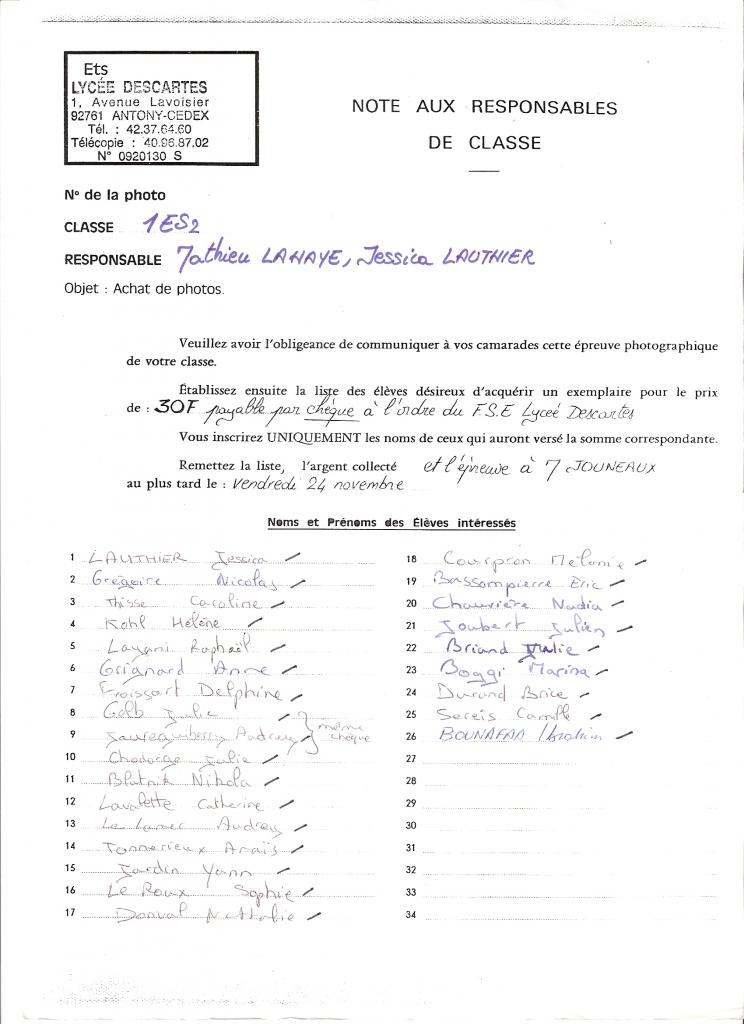 Ets
LYCÉE DESCARTES
1, Avenue Lavoisier
92761 ANTONY-CEDEX
Tél. : 42.37.64.60
Télécopie : 40.96.87.02
N° 0920130 S
NOTE AUX RESPONSABLES
DE CLASSE
N° de la photo
CLASSE 1ES2
RESPONSABLE Mathieu LAHAYE, Jessica LAUTHIER
Objet : Achat de photos.
Veuillez avoir l'obligeance de communiquer à vos camarades cette épreuve photographique
de votre classe.
Établissez ensuite la liste des élèves désireux d'acquérir un exemplaire pour le prix
de : 30F payable par chèque à l'ordre du F.S.E Lycée Descartes
Vous inscrirez UNIQUEMENT les noms de ceux qui auront versé la somme correspondante.
Remettez la liste, l'argent collecté et l'épreuve à M JOUNEAUX
au plus tard le : Vendredi 24 novembre
Noms et Prénoms des Élèves intéressés
1 LAUTHIER Jessica
2 Grégoire Nicolas
3 Thisse Caroline
4 Kohl Hélène
5 Layani Raphaël
6 Grignard Anne
7 Froissart Delphine
8 Golb Julie
9 Jaureguiberry Audrey
même chèque
10 Chodorge Julie
11 Blutnik Nikola
12 Lavalette Catherine
13 Le Lamer Audrey
14 Tonnerieux Anaïs
15 Jardin Yann
16 Le Roux Sophie
17 Donval Nathalie
18 Courpron Mélanie
19 Bassompierre Eric
20 Chauvière Nadia
21 Joubert Julien
22 Briand Julie
23 Boggi Marina
24 Durand Brice
25 Sereis Camille
26 BOUNAFAA Ibrahim
27
28
29
30
31
32
33
34